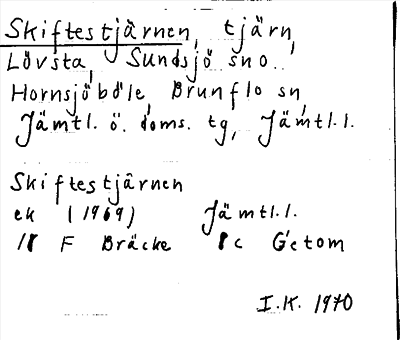 Skiftestjärnen, tjärn,
Lövsta, Sundsjö sno.,
Hornsjöböle, Brunflo sn,
Jämtl. ö. doms. tg, Jämtl.l.
Skiftestjärnen
ek (1969) Jämtl.l.
18 F Bräcke 8 c Getom
I.K. 1970